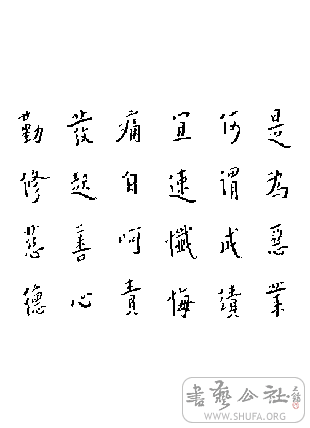 是為惡業
何謂成績
宜速懺悔
痛自呵責
發起善心
勤修慈德
書藝公社
WWW.SHUFA.ORG